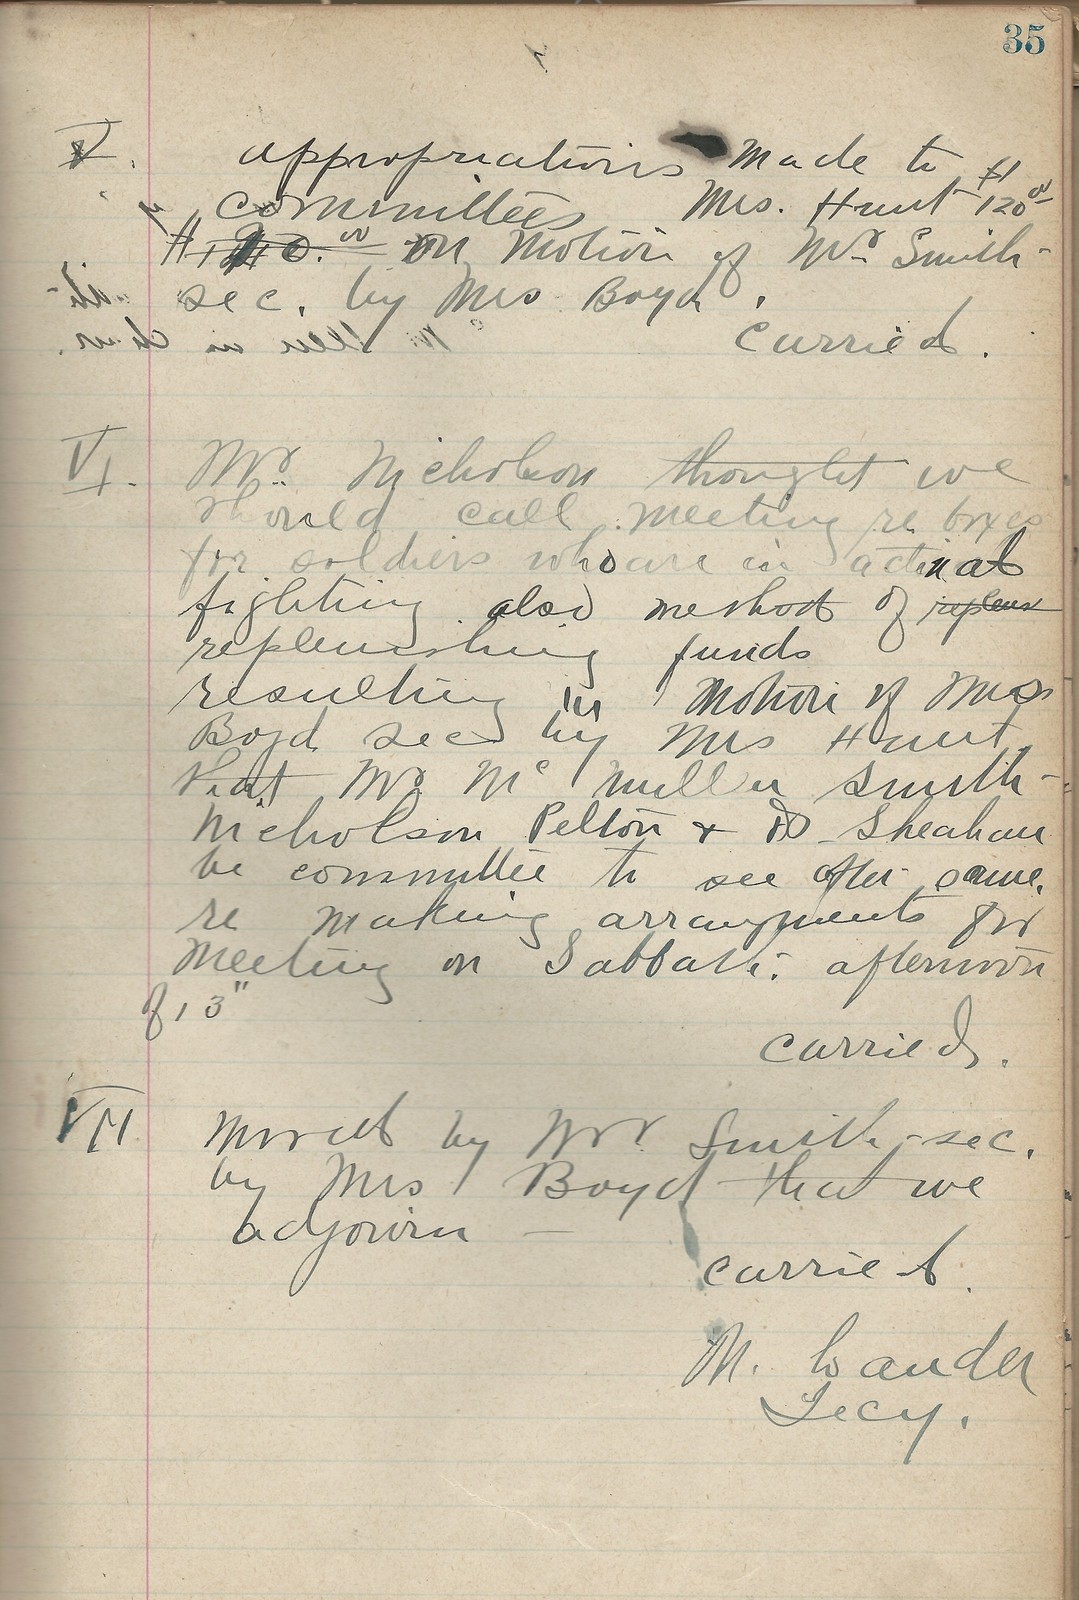 35
V. appropriations made to
committees Mrs. Hunt $120.00
on motion of Mr. Smith -
sec. by Mrs Boyd.
carried.
VI. Mr. Nicholson thought we
should call meeting re boxes
for soldiers who are in actual
fighting also method of replens
replenishing funds
resulting in motion of Mrs
Boyd sec by Mrs Hunt,
that Mr Mc Millen Smith -
Nicholson Pelton & Sheahan
be committee to see after same.
re making arrangments for
meeting on Sabbath: afternoon
of 13"
carried.
VII Moved by Mr. Smith - sec.
by Mrs Boyd that we
adjourn —
carried.
M.
Secy.